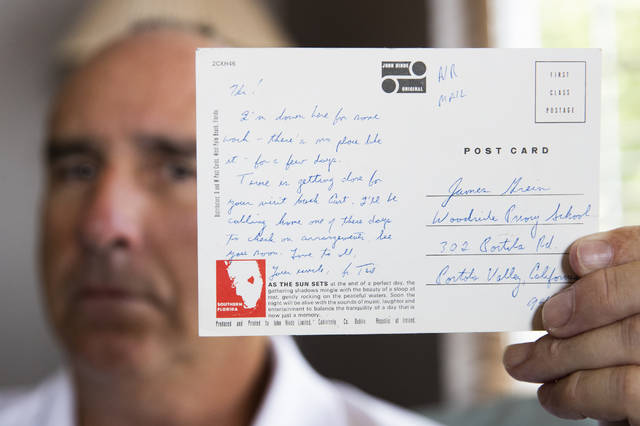 2CXH46
JOHN HINDE
ORIGINAL
AIR
MAIL
FIRST
CLASS
POSTAGE
Distributors: D and W Post Cards, West Palm Beach, Florida
Hi!
I'm down here for some
work – there's no place like
it – for a few days.
Time is getting close for
your visit back East. I'll be
calling home one of these days
to check on arrangements. See
you soon. Love to all,
POST CARD
James
Woodside Priory School
302 Portola Rd.
Portola Valley, California
SOUTHERN
FLORIDA
AS THE SUN SETS at the end of a perfect day, the
gathering shadows mingle with the beauty of a sloop at
rest, gently rocking on the peaceful waters. Soon the
night will be alive with the sounds of music, laughter and
entertainment to balance the tranquility of a day that is
now just a memory.
Produced and Printed by John Hinde Limited, Cabinteely, Co. Dublin, Republic of Ireland.